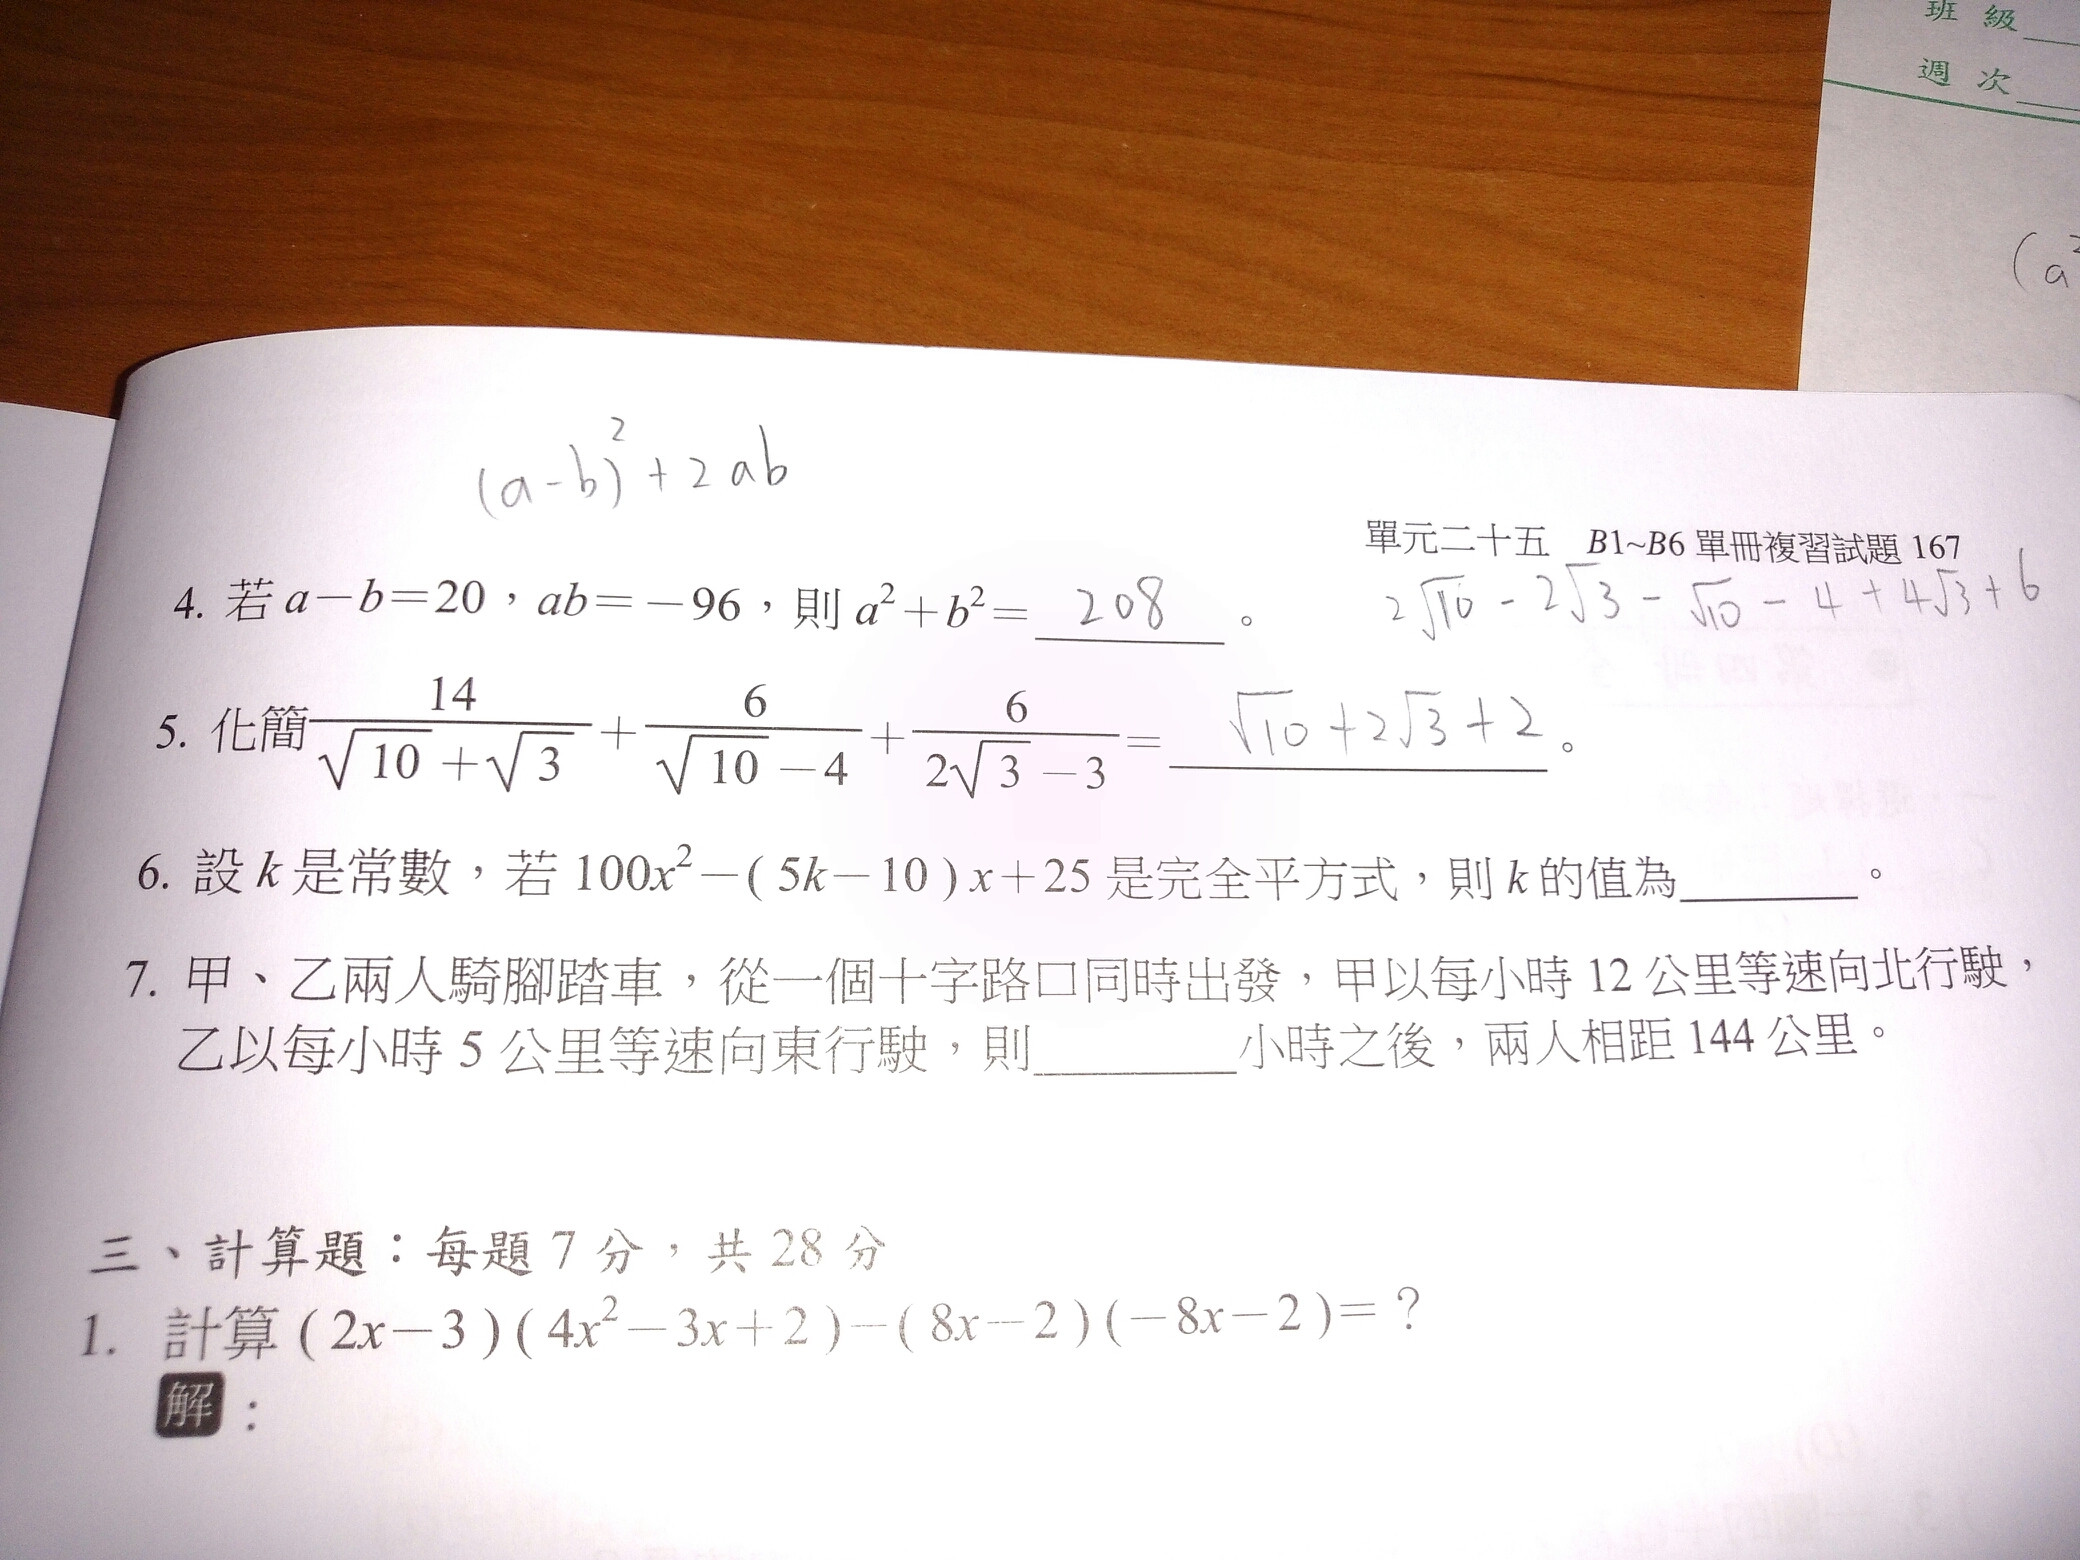 班級
週次
(a²
(a-b)²+2ab
單元二十五 B1~B6 單冊複習試題 167
2√10 - 2√3 - √10 - 4 + 4√3 + 6
4. 若 a－b＝20，ab＝－96，則 a²＋b²＝ 208 。
5. 化簡 14/(√10＋√3)＋6/(√10－4)＋6/(2√3－3)＝ √10+2√3+2 。
6. 設 k 是常數，若 100x²－(5k－10)x＋25 是完全平方式，則 k 的值為______。
7. 甲、乙兩人騎腳踏車，從一個十字路口同時出發，甲以每小時 12 公里等速向北行駛，
乙以每小時 5 公里等速向東行駛，則______小時之後，兩人相距 144 公里。
三、計算題：每題 7 分，共 28 分
1. 計算 (2x－3)(4x²－3x＋2)－(8x－2)(－8x－2)＝？
解：